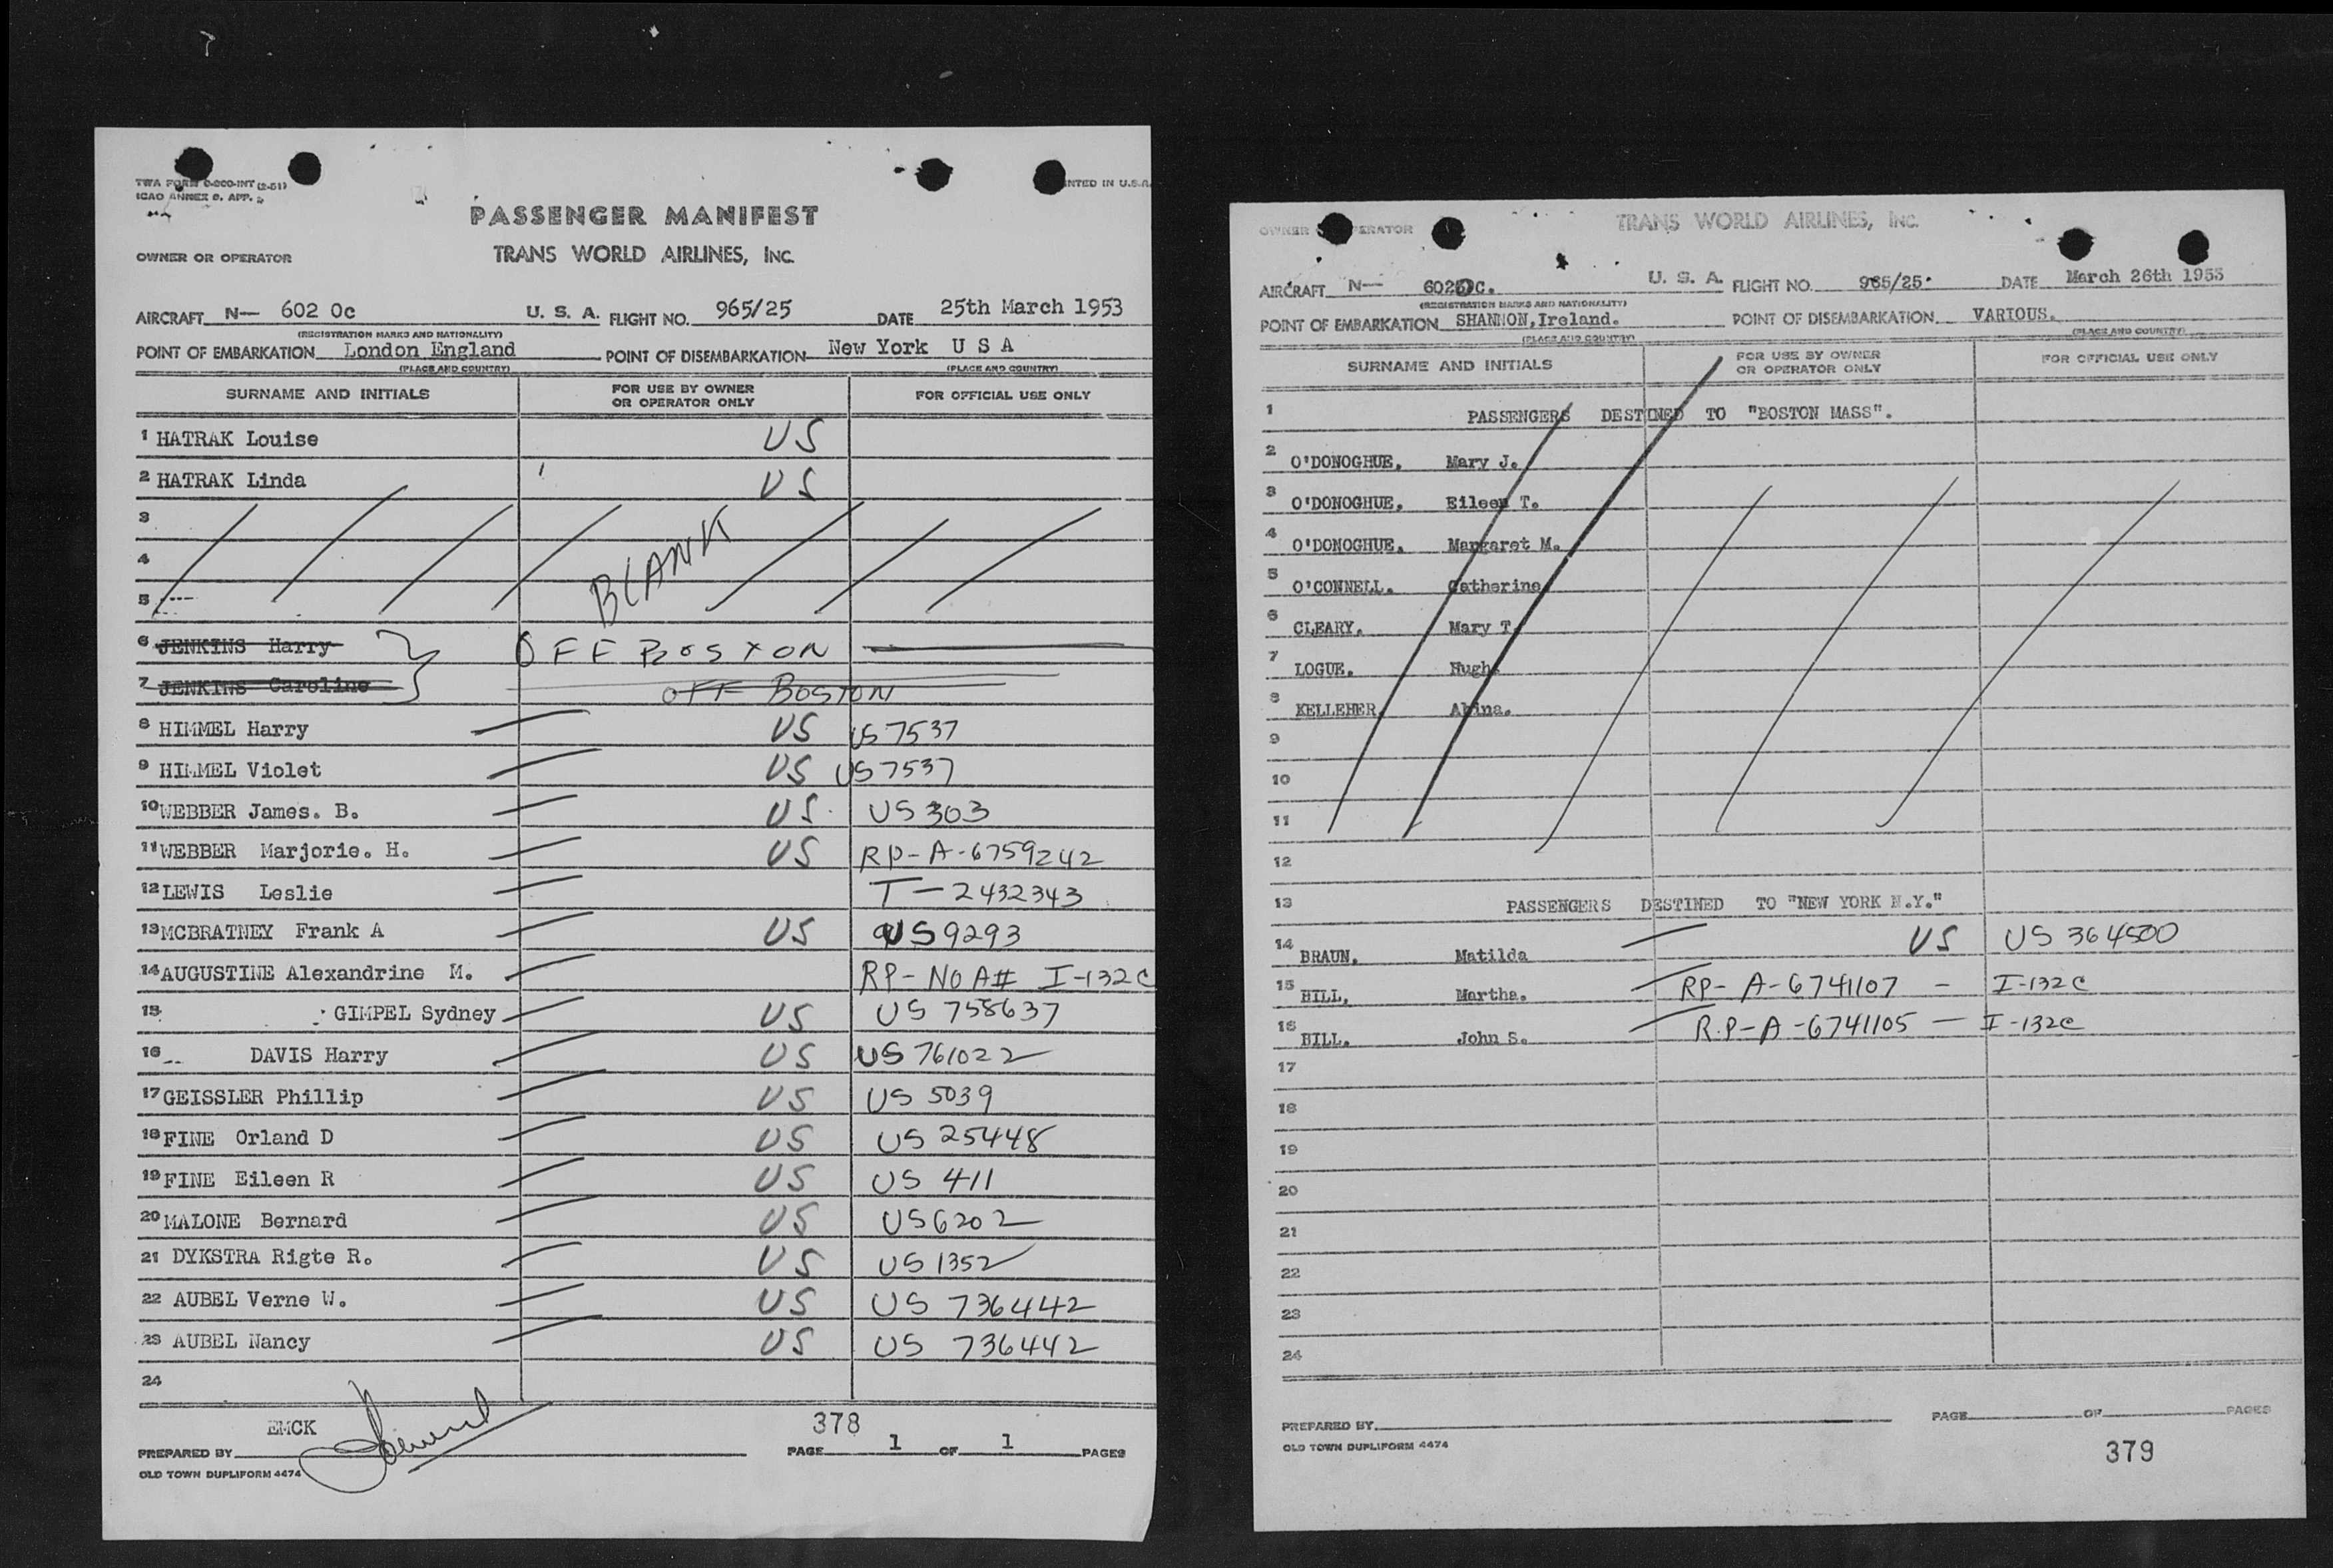 TWA FORM O-200-INT (2-51)
ICAO ANNEX 9. APP.
PRINTED IN U.S.A.
PASSENGER MANIFEST
OWNER OR OPERATOR TRANS WORLD AIRLINES, INC.
AIRCRAFT N— 602 0c U. S. A. FLIGHT NO. 965/25 DATE 25th March 1953
(REGISTRATION MARKS AND NATIONALITY)
POINT OF EMBARKATION London England POINT OF DISEMBARKATION New York U S A
(PLACE AND COUNTRY) (PLACE AND COUNTRY)
SURNAME AND INITIALS FOR USE BY OWNER OR OPERATOR ONLY FOR OFFICIAL USE ONLY
1 HATRAK Louise US
2 HATRAK Linda US
3
4 BLANK
5
6 JENKINS Harry OFF BOSTON
7 JENKINS Caroline OFF BOSTON
8 HIMMEL Harry US US 7537
9 HIMMEL Violet US US 7537
10 WEBBER James. B. US. US 303
11 WEBBER Marjorie. H. US RP-A-6759242
12 LEWIS Leslie T-2432343
13 MCBRATNEY Frank A US US 9293
14 AUGUSTINE Alexandrine M. RP-NO A# I-132C
15 GIMPEL Sydney US US 758637
16 DAVIS Harry US US 761022
17 GEISSLER Phillip US US 5039
18 FINE Orland D US US 25448
19 FINE Eileen R US US 411
20 MALONE Bernard US US6202
21 DYKSTRA Rigte R. US US 1352
22 AUBEL Verne W. US US 736442
23 AUBEL Nancy US US 736442
24
EMCK 378
PREPARED BY PAGE 1 OF 1 PAGES
OLD TOWN DUPLIFORM 4474
OWNER OPERATOR TRANS WORLD AIRLINES, INC.
AIRCRAFT N— 6020C. U. S. A. FLIGHT NO. 965/25. DATE March 26th 1953
(REGISTRATION MARKS AND NATIONALITY)
POINT OF EMBARKATION SHANNON, Ireland. POINT OF DISEMBARKATION VARIOUS.
(PLACE AND COUNTRY) (PLACE AND COUNTRY)
SURNAME AND INITIALS FOR USE BY OWNER OR OPERATOR ONLY FOR OFFICIAL USE ONLY
1 PASSENGERS DESTINED TO "BOSTON MASS".
2 O'DONOGHUE. Mary J.
3 O'DONOGHUE. Eileen T.
4 O'DONOGHUE. Margaret M.
5 O'CONNELL. Catherine
6 CLEARY. Mary T.
7 LOGUE. Hugh.
8 KELLEHER. Abina.
9
10
11
12
13 PASSENGERS DESTINED TO "NEW YORK N.Y."
14 BRAUN. Matilda US US 364500
15 BILL. Martha. RP- A-6741107 - I-132C
16 BILL. John S. R.P-A-6741105 - I-132C
17
18
19
20
21
22
23
24
PREPARED BY PAGE OF PAGES
OLD TOWN DUPLIFORM 4474
379